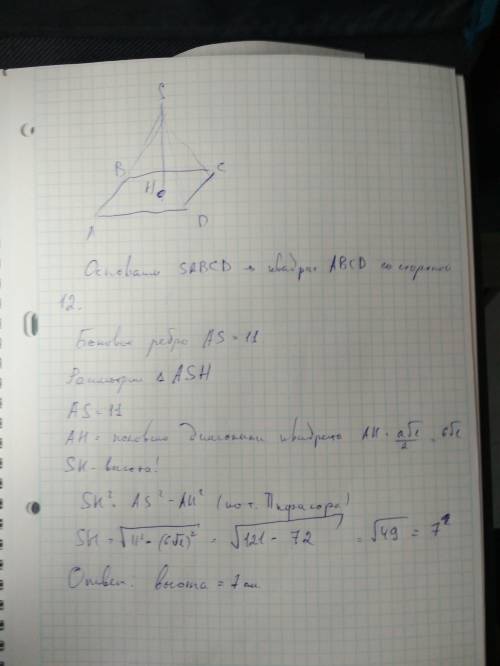 S
B C
H
A D
Основание SABCD – квадрат ABCD со стороной
12.
Боковое ребро AS = 11
Рассмотрим Δ ASH
AS = 11
AH = половина диагонали квадрата AH = a√2/2 = 6√2
SH – высота!
SH² = AS² – AH² (по т. Пифагора)
SH = √11² – (6√2)² = √121 – 72 = √49 = 7
Ответ: высота = 7 см